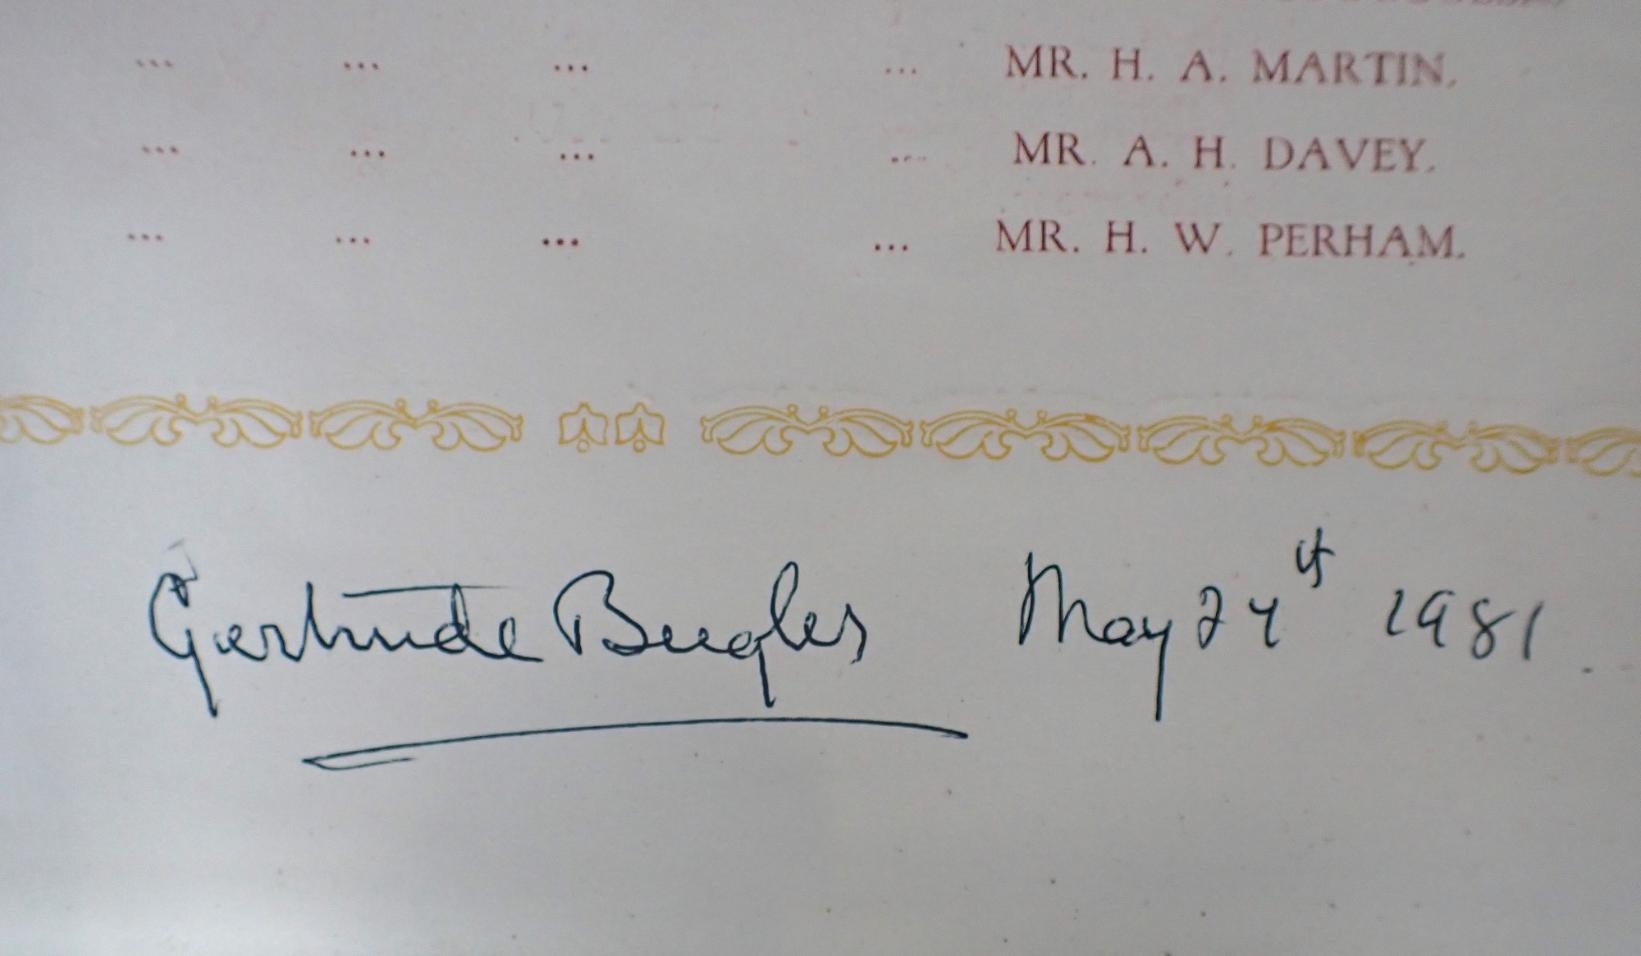 ... ... ... ... MR. H. A. MARTIN.
... ... ... ... MR. A. H. DAVEY.
... ... ... ... MR. H. W. PERHAM.
Gertrude Bugler May 24th 1981.